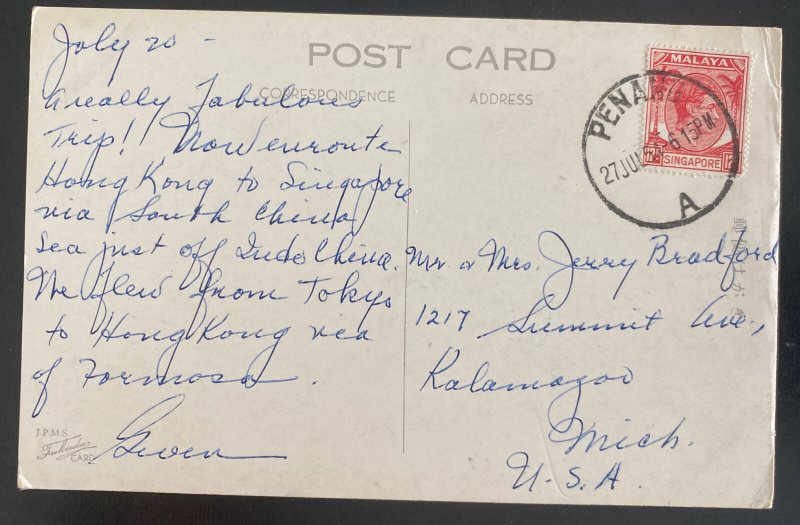 POST CARD
CORRESPONDENCE
ADDRESS
July 20 -
A really fabulous
Trip! Now enroute
Hong Kong to Singapore
via South China
Sea just off Indo China.
We flew from Tokyo
to Hong Kong via
of Formosa.
Gwen
J.P.M.S.
Fukuda
CARD
MALAYA
SINGAPORE
PENANG
6 15PM
A
Mr. & Mrs. Jerry Bradford
1217 Summit Ave.,
Kalamazoo
Mich.
U.S.A.